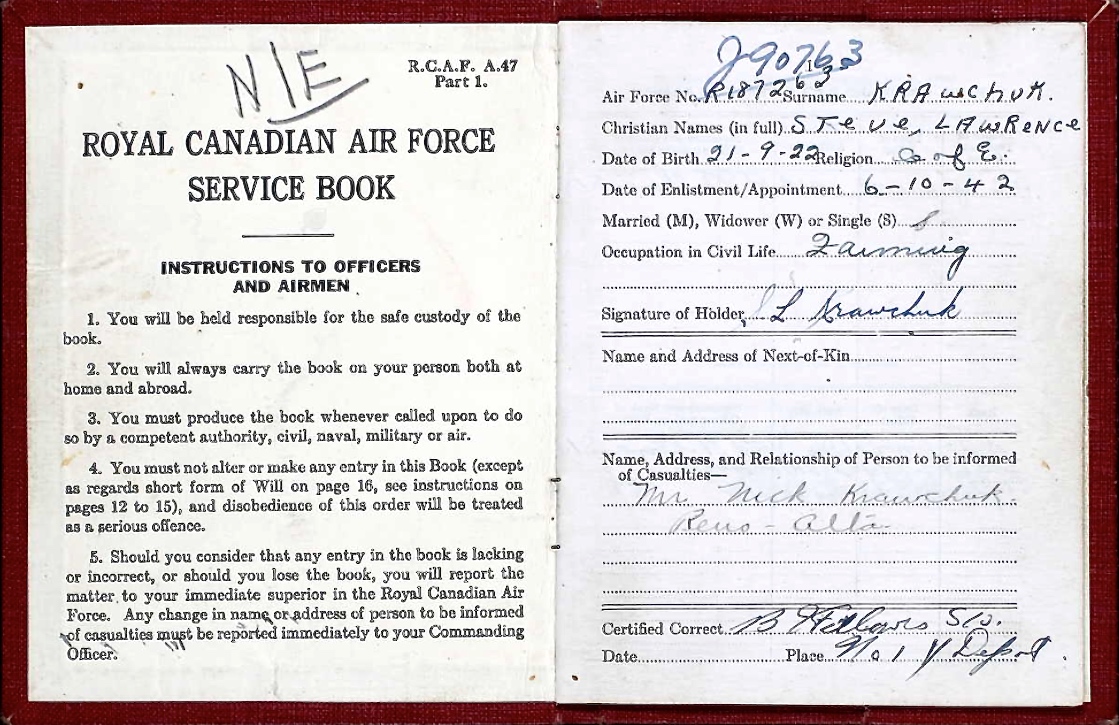 NIE
R.C.A.F. A.47
Part 1.
ROYAL CANADIAN AIR FORCE
SERVICE BOOK
INSTRUCTIONS TO OFFICERS
AND AIRMEN
1. You will be held responsible for the safe custody of the
book.
2. You will always carry the book on your person both at
home and abroad.
3. You must produce the book whenever called upon to do
so by a competent authority, civil, naval, military or air.
4. You must not alter or make any entry in this Book (except
as regards short form of Will on page 16, see instructions on
pages 12 to 15), and disobedience of this order will be treated
as a serious offence.
5. Should you consider that any entry in the book is lacking
or incorrect, or should you lose the book, you will report the
matter to your immediate superior in the Royal Canadian Air
Force. Any change in name or address of person to be informed
of casualties must be reported immediately to your Commanding
Officer.
J90763
Air Force No. R187263 Surname KRAWCHUK.
Christian Names (in full) STEVE, LAWRENCE
Date of Birth 21-9-22 Religion C of E.
Date of Enlistment/Appointment 6-10-42
Married (M), Widower (W) or Single (S) S
Occupation in Civil Life Farming
Signature of Holder L Krawchuk
Name and Address of Next-of-Kin
Name, Address, and Relationship of Person to be informed
of Casualties—
Mr Nick Krawchuk.
Reno - Alta
Certified Correct B S/O.
Date Place No 1 Y Depot.